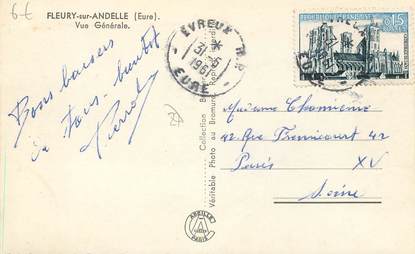 6€
FLEURY-sur-ANDELLE (Eure).
Vue Générale.
EVREUX R.P.
31-5
1961
EURE
REPUBLIQUE FRANÇAISE
0,15
Bons baisers
à Tous. bientôt
Pierrot
Collection
Véritable Photo au Bromure
Madame
42 Rue 42
Paris XV
Seine
ABEILLE
PARIS